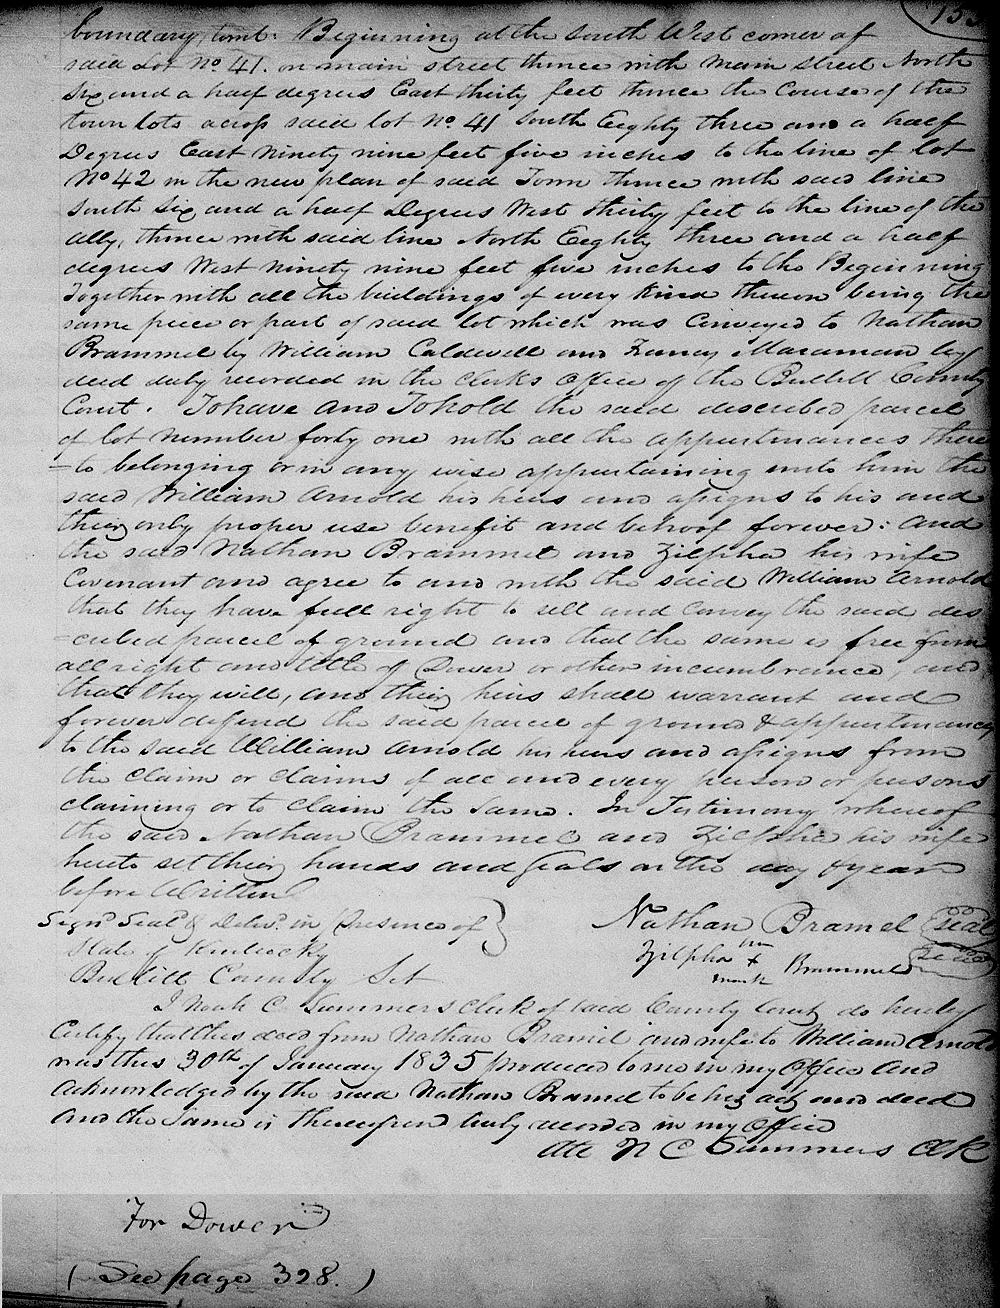 153
boundary, towit: Beginning at the South West corner of
said Lot No 41. on main street thence with Main street North
Six and a half degrees East thirty feet thence the Course of the
town lots across said lot No 41 South Eeghty three and a half
Degrees East Ninety nine feet five inches to the line of lot
No 42 in the new plan of said Town thence with said line
South Six and a half Degrees West thirty feet to the line of the
ally, thence with said line North Eeghty three and a half
degrees West ninety nine feet five inches to the Beginning
Together with all the buildings of every Kind thereon being the
same piece or part of said lot which was Conveyed to Nathan
Brammel by William Caldwell and Maraman by
deed duly recorded in the Clerks Office of the Bullitt County
Court. To have and To hold the said described parcel
of lot number forty one with all the appurtenances there
-to belonging or in any wise appertaining unto him the
said William Arnold his heirs and assigns to his and
their only proper use benefit and behoof forever: And
the said Nathan Brammel and Zilpha his wife
Covenant and agree to and with the said William Arnold
that they have full right to sell and convey the said des
-cribed parcel of ground and that the same is free from
all right and title of Dower or other incumbrance, and
that they will, and their heirs shall warrant and
forever defend the said parcel of ground & appurtenances
to the said William Arnold his heirs and assigns from
the claim or claims of all and every person or persons
claiming or to claim the same. In Testimony whereof
the said Nathan Brammel and Zilpha his wife
hereto set their hands and seals on the day & year
before Written
Signd Seald & Delivd. in Presence of } Nathan Bramel Seal
Zilpha her x mark Brammel Seal
State of Kentucky
Bullitt County Sct
I Noah C. Summers Clerk of said County Court do hereby
Certify that this deed from Nathan Bramel and wife to William Arnold
was this 30th of January 1835 produced to me in my Office and
acknowledged by the said Nathan Bramel to be his act and deed
and the Same is thereupon truly recorded in my office
Att N C Summers Clk
For Dower
(See page 328.)